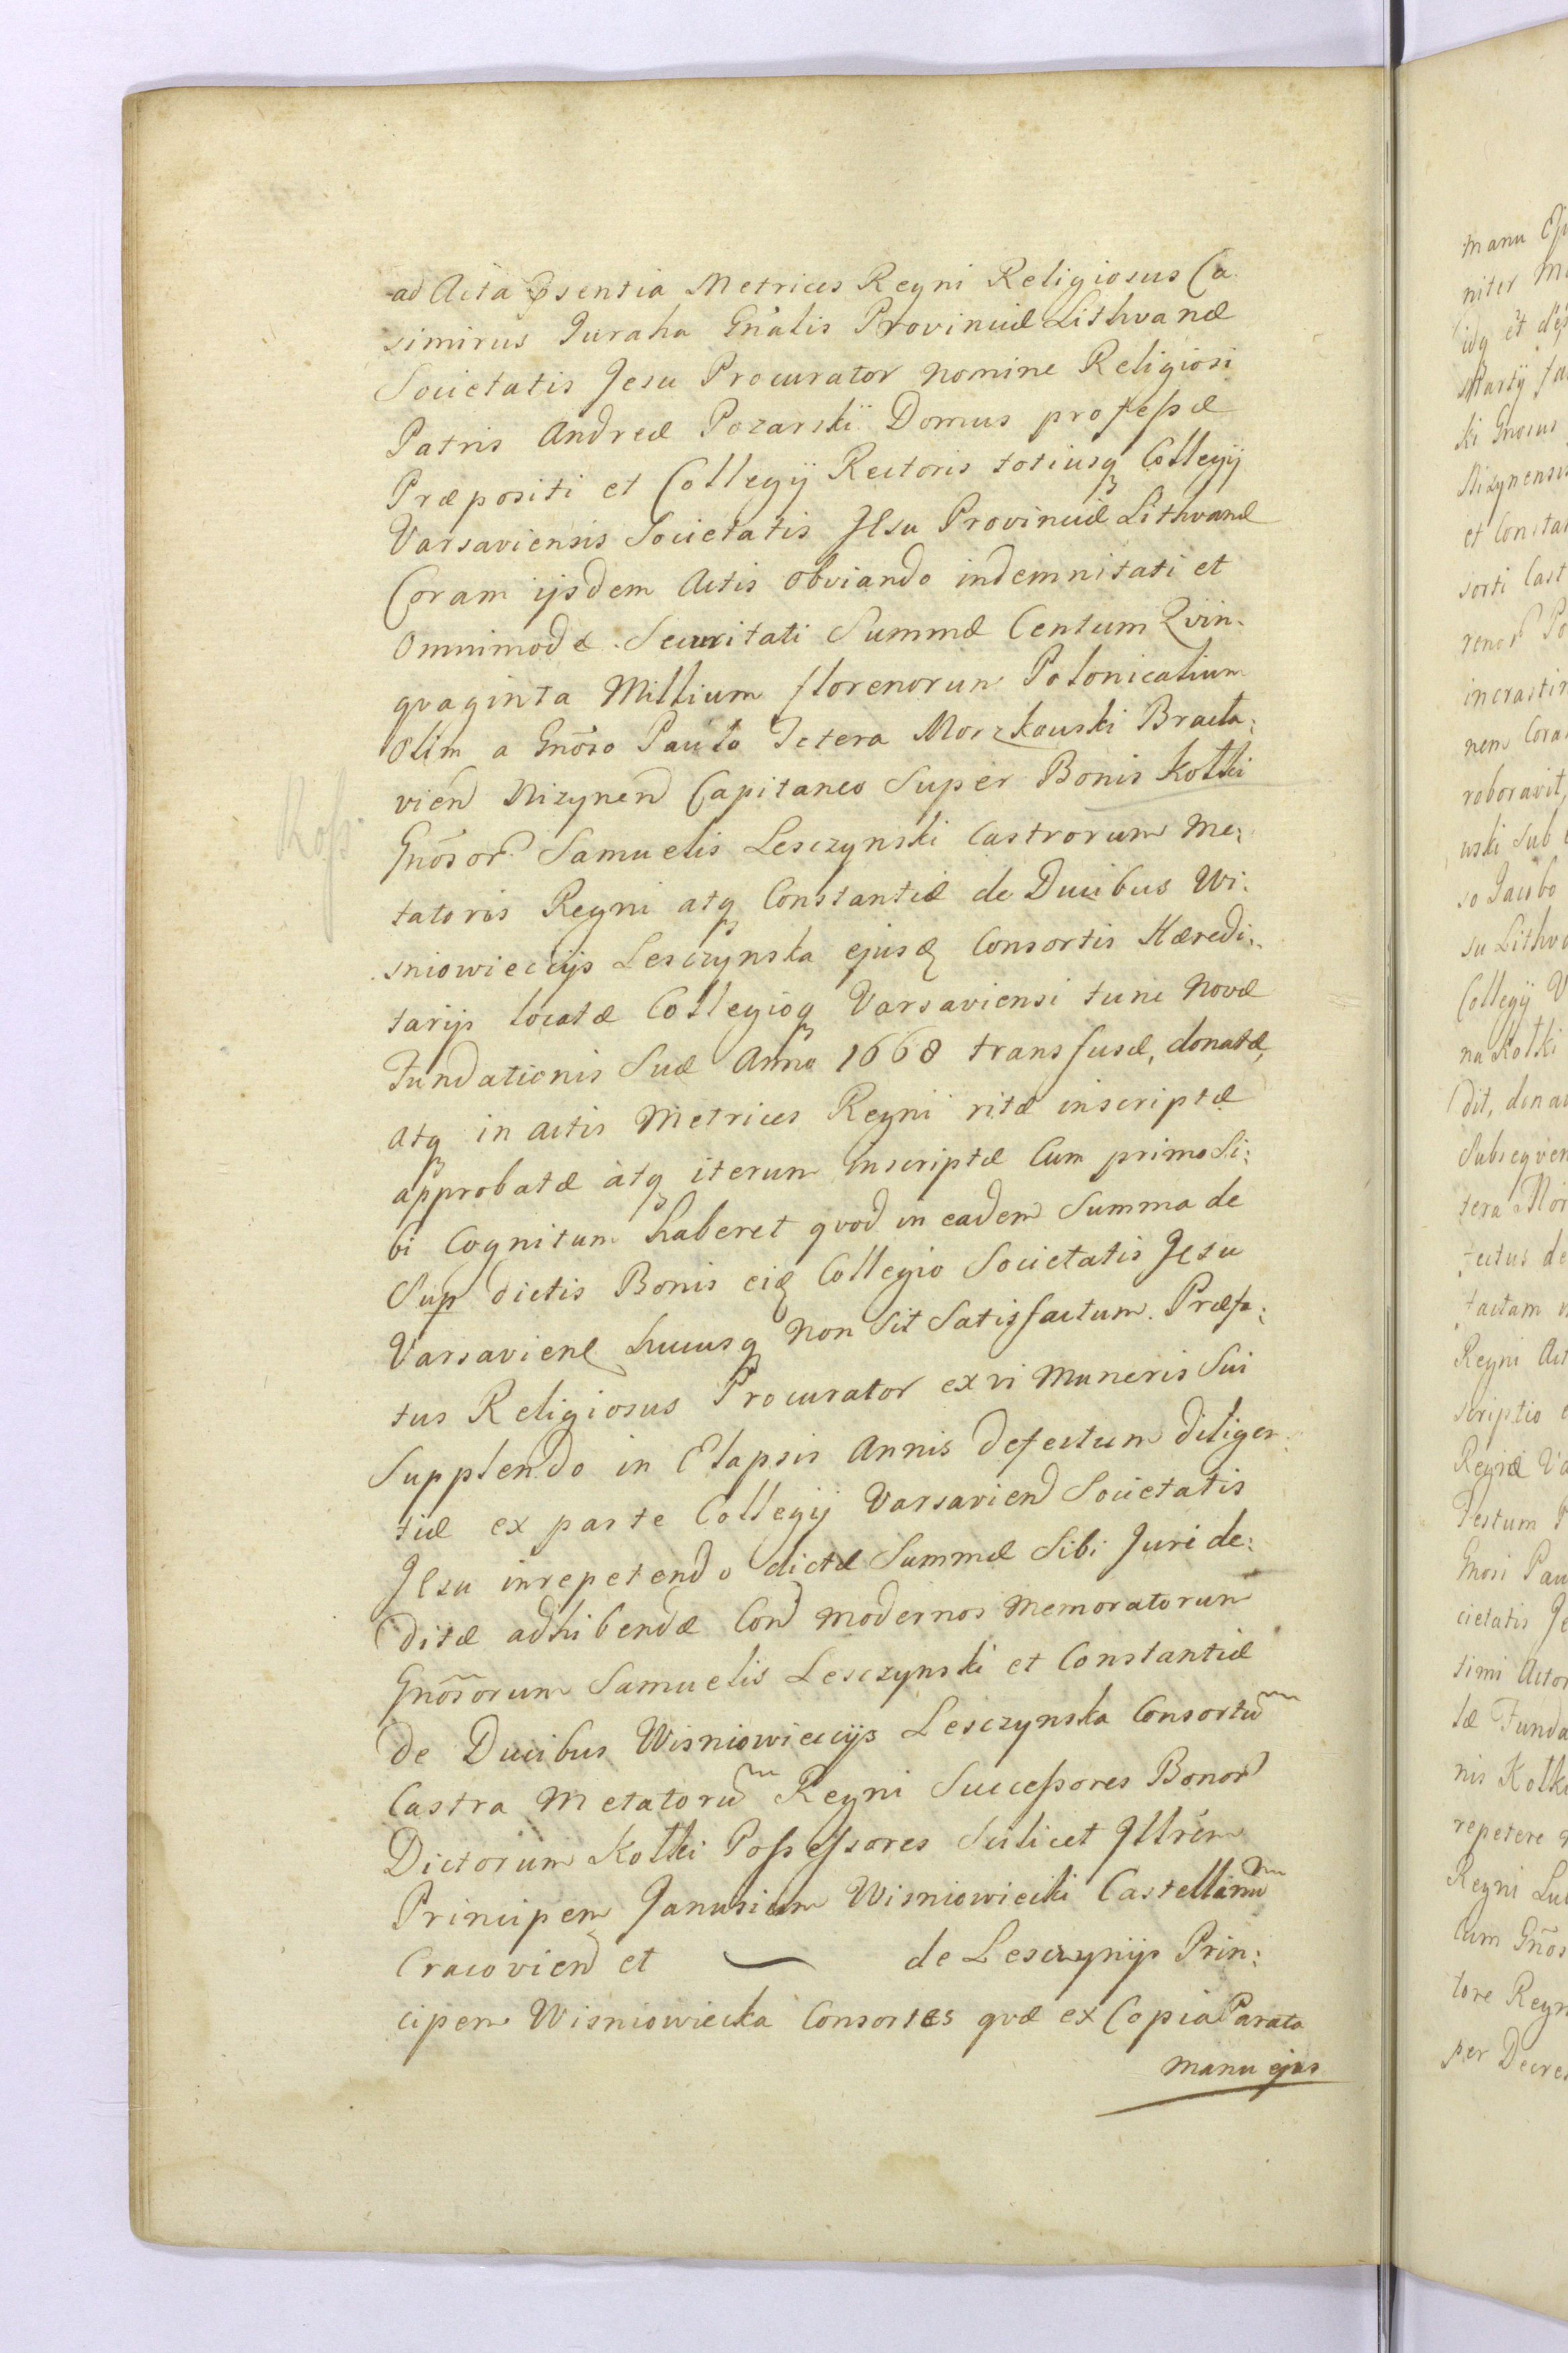 ad Acta Psentia Metrices Regni Religiosus Ca
simirus Juraha Gnalis Provinciæ Lithvanæ
Societatis Jesu Procurator nomine Religiosi
Patris Andreæ Pozarskij Domus professæ
Præpositi et Collegij Rectoris totiusq Collegij
Varsaviensis Societatis JEsu Provinciæ Lithvanæ
Coram ijsdem Actis obviando indemnitati et
Omnimodæ Securitati Summæ Centum Qvin-
qvaginta Millium florenorum Polonicalium
Olim a Gnõso Paulo Tetera Morzkowski Bracla:
vien Nizynen Capitaneo Super Bonis Kołki
Gnõsor Samuelis Lesczynski Castrorum Me:
tatoris Regni atq Constantiæ de Ducibus Wi:
sniowieccijs Lesczynska ejusq Consortis Hæredi:
tarijs locatæ Collegioq Varsaviensi tunc Novæ
Fundationis Suæ Anno 1668 transfusæ, donatæ,
atq in actis Metrices Regni ritæ inscriptæ
approbatæ atq iterum inscriptæ Cum primo Si:
bi Cognitum haberet qvod in eadem Summa de
Sup dictis Bonis eiq Collegio Societatis Jesu
Varsavien hucusq Non Sit Satisfactum. Præfa:
tus Religiosus Procurator ex vi Muneris Sui
Supplendo in Elapsis Annis defectum diligen:
tiæ ex parte Collegij Varsavien Societatis
JEsu in repetendo dictæ Summæ Sibi Jure de:
ditæ adhibendæ Con modernos Memoratorum
Gnõsorum Samuelis Lesczynski et Constantiæ
de Ducibus Wisniowieccijs Lesczynska Consortũ
Castra Metatorũ Regni Successores Bonor
Dictorum Kołki Possessores Scilicet Jllrem
Principem Janusium Wisniowiecki Castellanũ
Cracovien et de Lesczynijs Prin:
cipem Wisniowiecka Consortes qvæ ex Copia Parata
manu ejus
manu
niter
idq et
Martij
ki Gnosus
Nizynensis
et Constan
sorti Cast
renor Po
incrastin
nem Cora
roboravit,
wski Sub
so Jacobo
su Lithva
Collegij V
na Kołki
dit, dona
Subseqven
tera Mor
factam
Regni Act
scriptio
Regniæ Va
Festum
Gnosi Pau
cietatis Je
timi Actor
tæ Funda
nis Kołki
repetere
Regni Lub
Cum Gños
tore Regn
per Decre